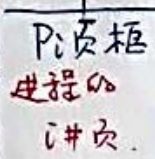 Pi页框
进程的
i#页.